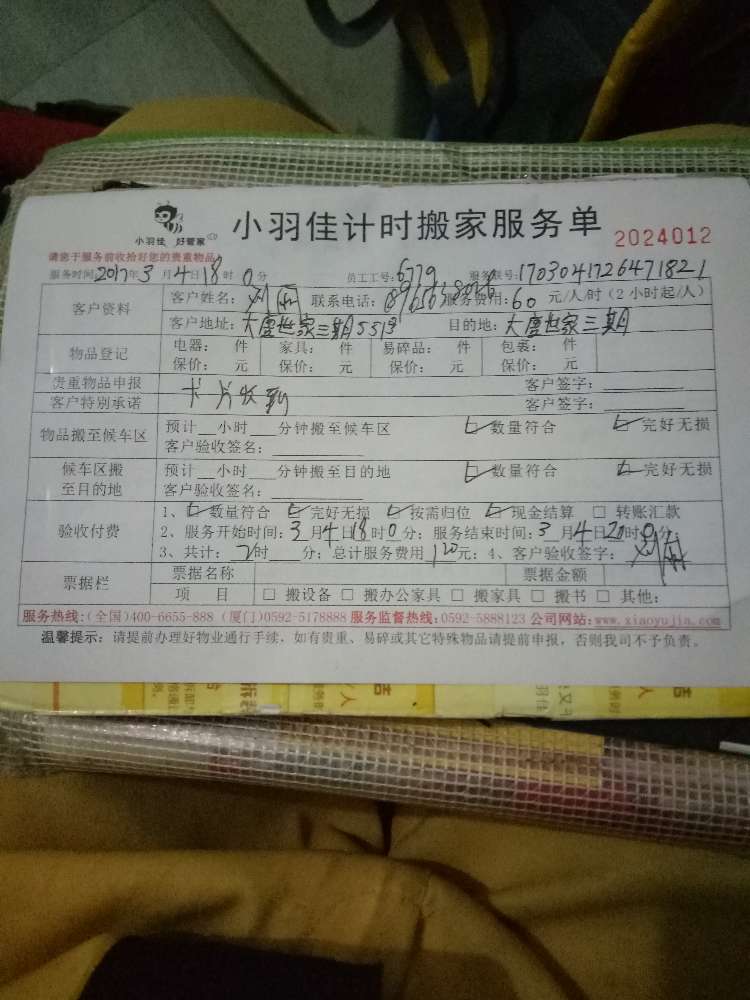 小羽佳 好管家
小羽佳计时搬家服务单
2024012
请您于服务前收拾好您的贵重物品
服务时间2017年3月4日18时0分 员工工号:6779 服务联号:1703041726471821
客户资料
客户姓名: 联系电话: 服务费用:60元/人/时(2小时起/人)
客户地址:大唐世家三期 目的地:大唐世家三期
物品登记
电器: 件 家具: 件 易碎品: 件 包裹: 件
保价: 元 保价: 元 保价: 元 保价: 元
贵重物品申报 客户签字:
客户特别承诺 卡片收到 客户签字:
物品搬至候车区
预计__小时___分钟搬至候车区 ☑数量符合 ☑完好无损
客户验收签名:
候车区搬至目的地
预计__小时___分钟搬至目的地 ☑数量符合 ☑完好无损
客户验收签名:
验收付费
1、☑数量符合 ☑完好无损 ☑按需归位 ☑现金结算 □ 转账汇款
2、服务开始时间:3月4日18时0分; 服务结束时间:3月4日20时0分;
3、共计:2时___分; 总计服务费用120元; 4、客户验收签字:
票据栏
票据名称 票据金额
项 目 □ 搬设备 □ 搬办公家具 □ 搬家具 □ 搬书 □ 其他:
服务热线:(全国)400-6655-888 (厦门)0592-5178888 服务监督热线:0592-5888123 公司网站:www.xiaoyujia.com
温馨提示: 请提前办理好物业通行手续, 如有贵重、易碎或其它特殊物品请提前申报, 否则我司不予负责。